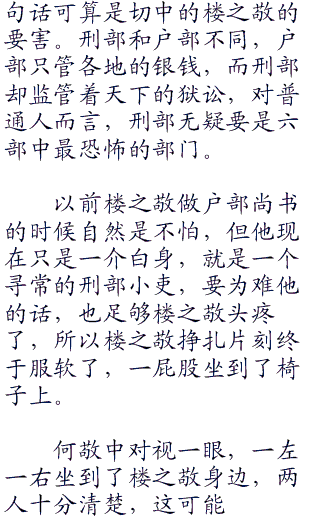 句话可算是切中的楼之敬的
要害。刑部和户部不同，户
部只管各地的银钱，而刑部
却监管着天下的狱讼，对普
通人而言，刑部无疑要是六
部中最恐怖的部门。
以前楼之敬做户部尚书
的时候自然是不怕，但他现
在只是一介白身，就是一个
寻常的刑部小吏，要为难他
的话，也足够楼之敬头疼
了，所以楼之敬挣扎片刻终
于服软了，一屁股坐到了椅
子上。
何敬中对视一眼，一左
一右坐到了楼之敬身边，两
人十分清楚，这可能